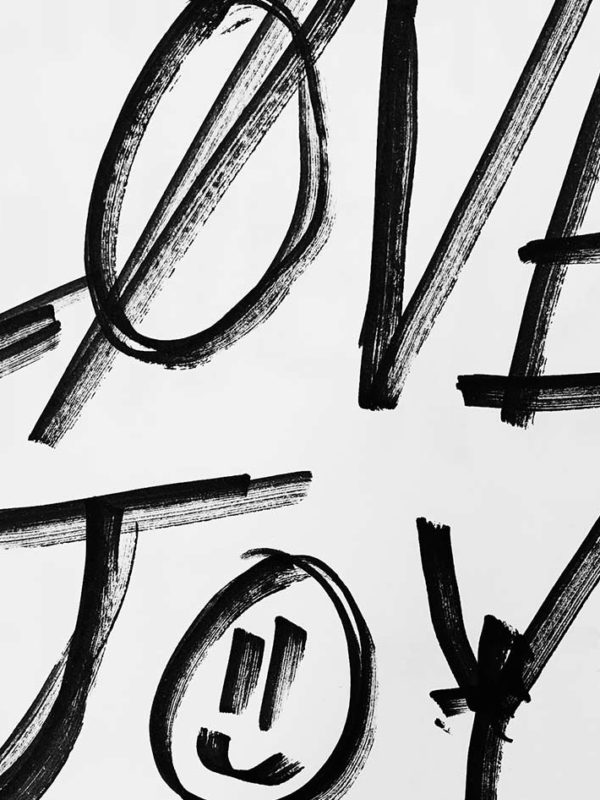 LOVE
JOY